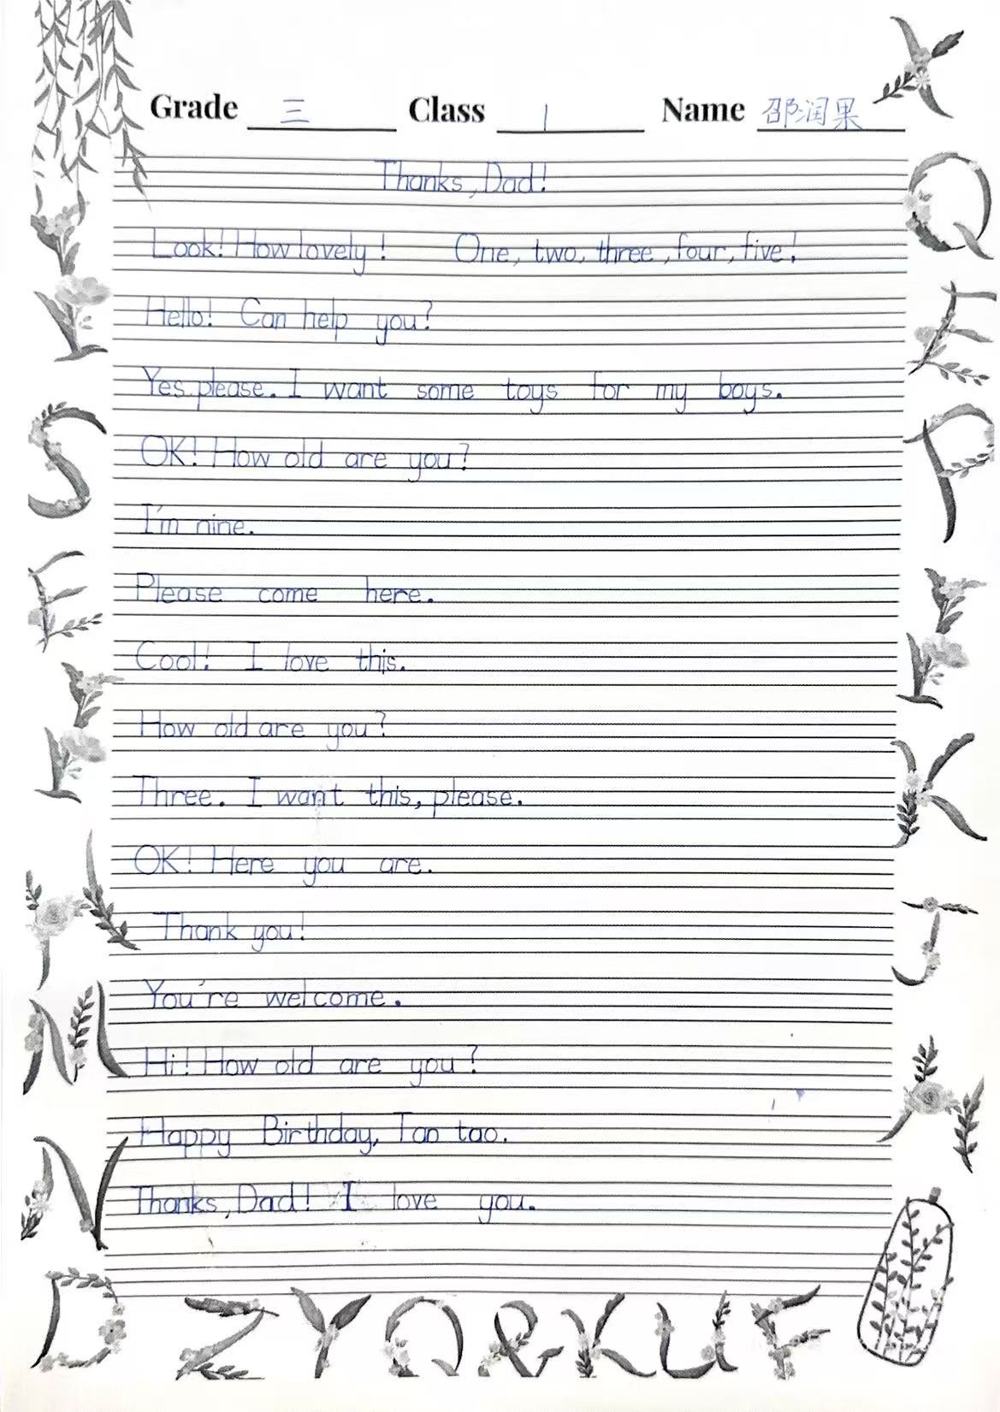 Grade 三 Class 1 Name 邵润果
Thanks, Dad!
Look! How lovely! One, two, three, four, five!
Hello! Can help you?
Yes please. I want some toys for my boys.
OK! How old are you?
I'm nine.
Please come here.
Cool! I love this.
How old are you?
Three. I want this, please.
OK! Here you are.
Thank you!
You're welcome.
Hi! How old are you?
Happy Birthday, Tao tao.
Thanks, Dad! I love you.